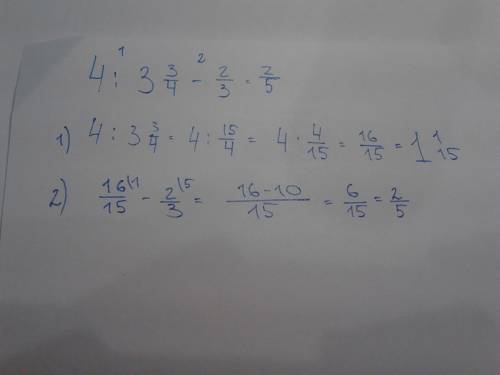 4 :¹ 3 3/4 -² 2/3 = 2/5
1) 4 : 3 3/4 = 4 : 15/4 = 4 · 4/15 = 16/15 = 1 1/15
2) 16/15 \1 - 2/3 \5 = 16-10/15 = 6/15 = 2/5